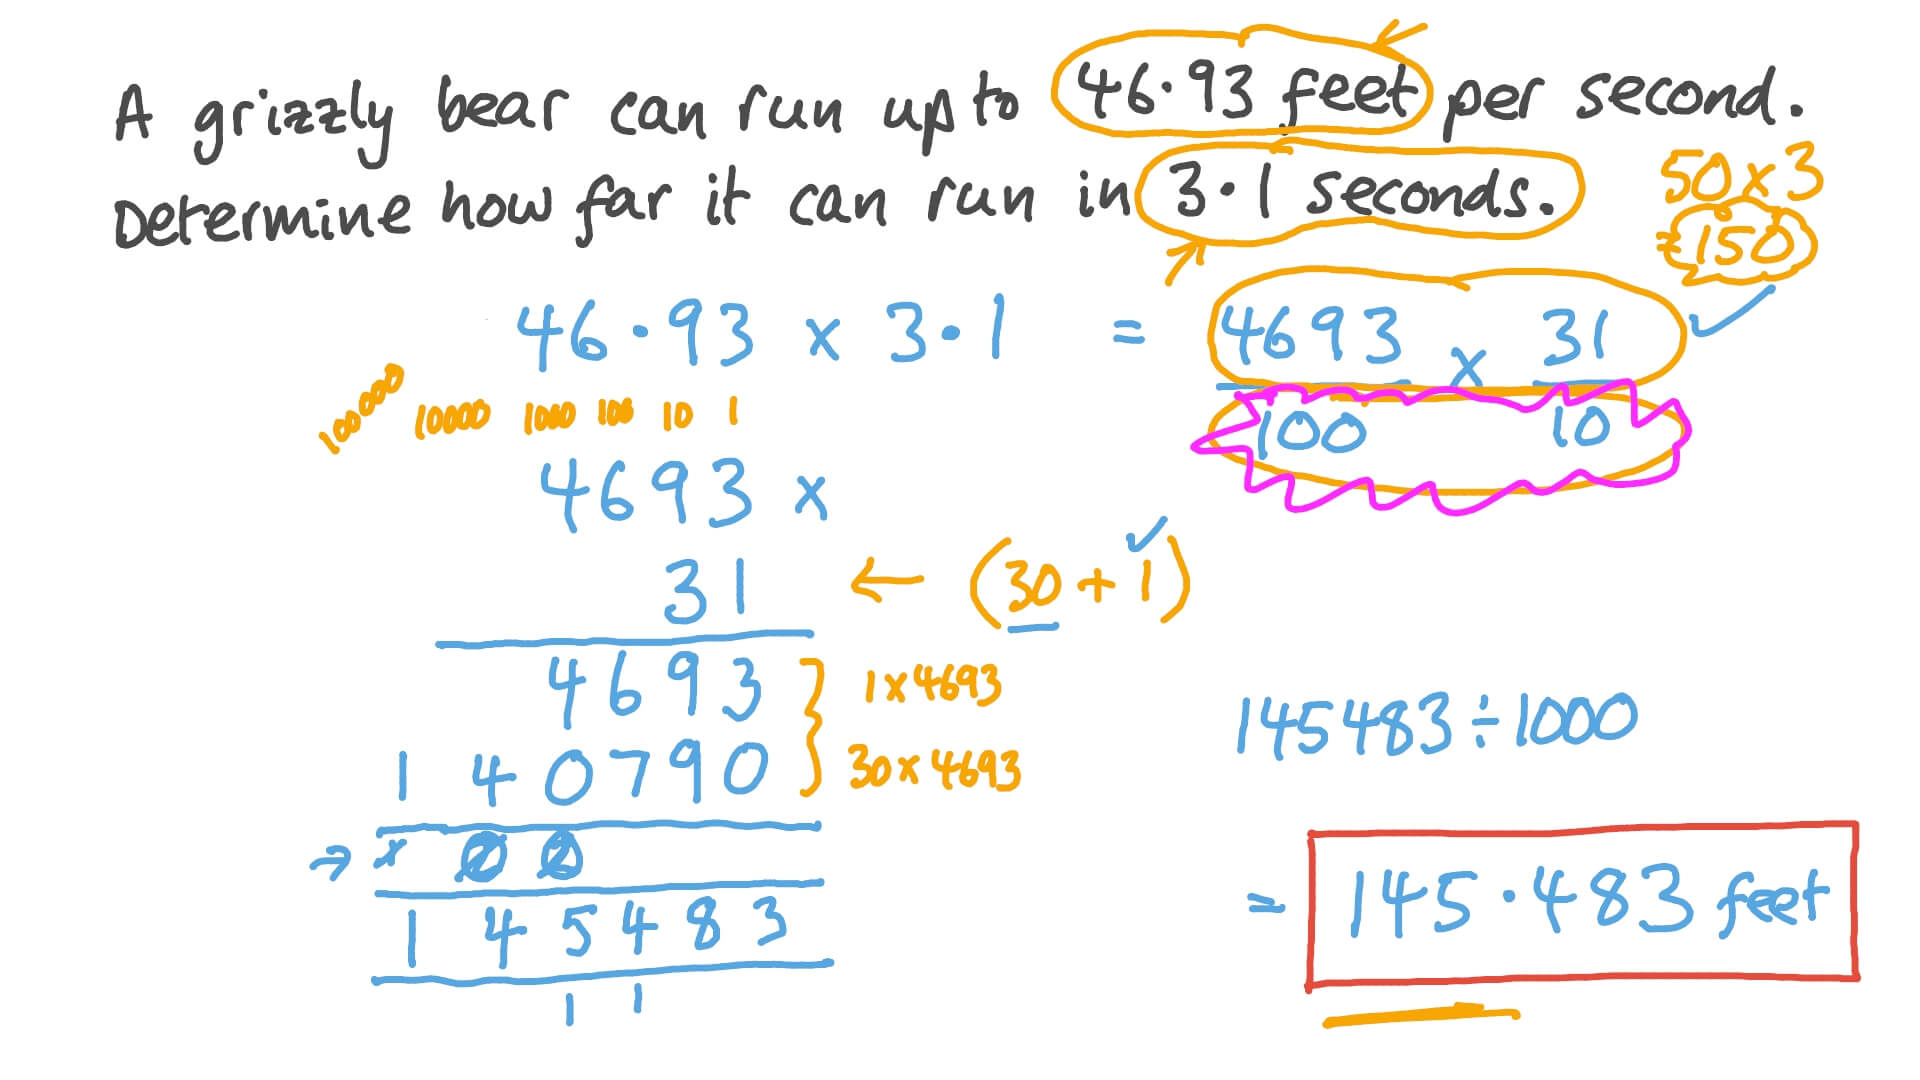 A grizzly bear can run up to 46.93 feet per second.
Determine how far it can run in 3.1 seconds.
50 x 3
= 150
46.93 x 3.1 = 4693 x 31
100 10
100000 10000 1000 100 10 1
4693 x
31 ← (30 + 1)
4693 1 x 4693
140790 30 x 4693
145483 ÷ 1000
145483
= 145.483 feet
1 1